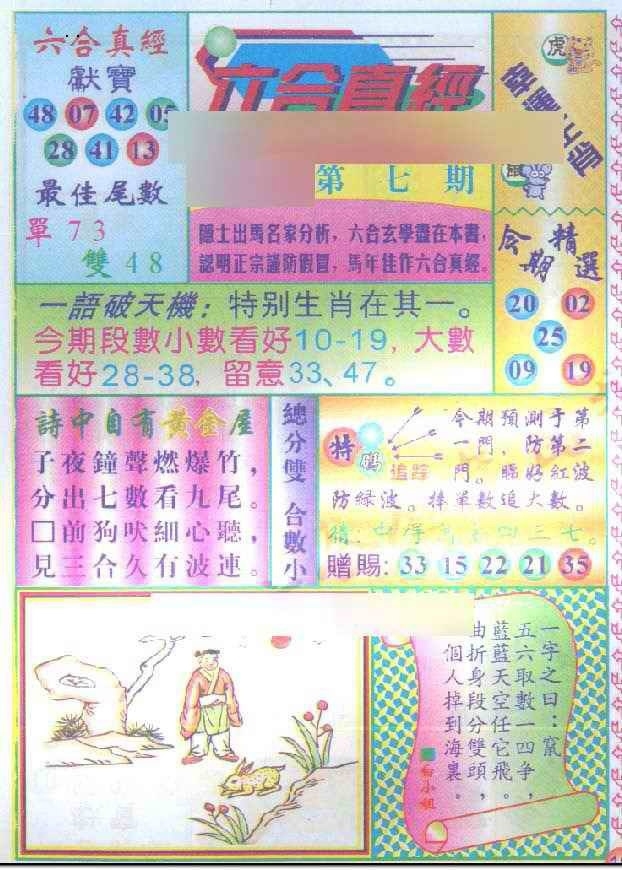 六合真經
獻寶
48 07 42 05
28 41 13
最佳尾數
單 7 3
雙 4 8
六合真經
第七期
隱士出馬名家分析，六合玄學盡在本書，
認明正宗謹防假冒，馬年佳作六合真經。
虎
鼠
今期精選
20 02
25
09 19
一語破天機：特別生肖在其一。
今期段數小數看好10-19，大數
看好28-38，留意33、47。
詩中自有黃金屋
子夜鐘聲燃爆竹，
分出七數看九尾。
囗前狗吠細心聽，
見三合久有波連。
總分雙 合數小
特碼
追踪
今期預測于第
一門，防第二
門。睇好紅波
防綠波。捧單數追大數。
四三七。
贈賜：33 15 22 21 35
一字之曰：竄
五六取數一四爭，
藍藍天空任它飛。
曲折身段分雙頭，
一個人掉到海裏。
白小姐